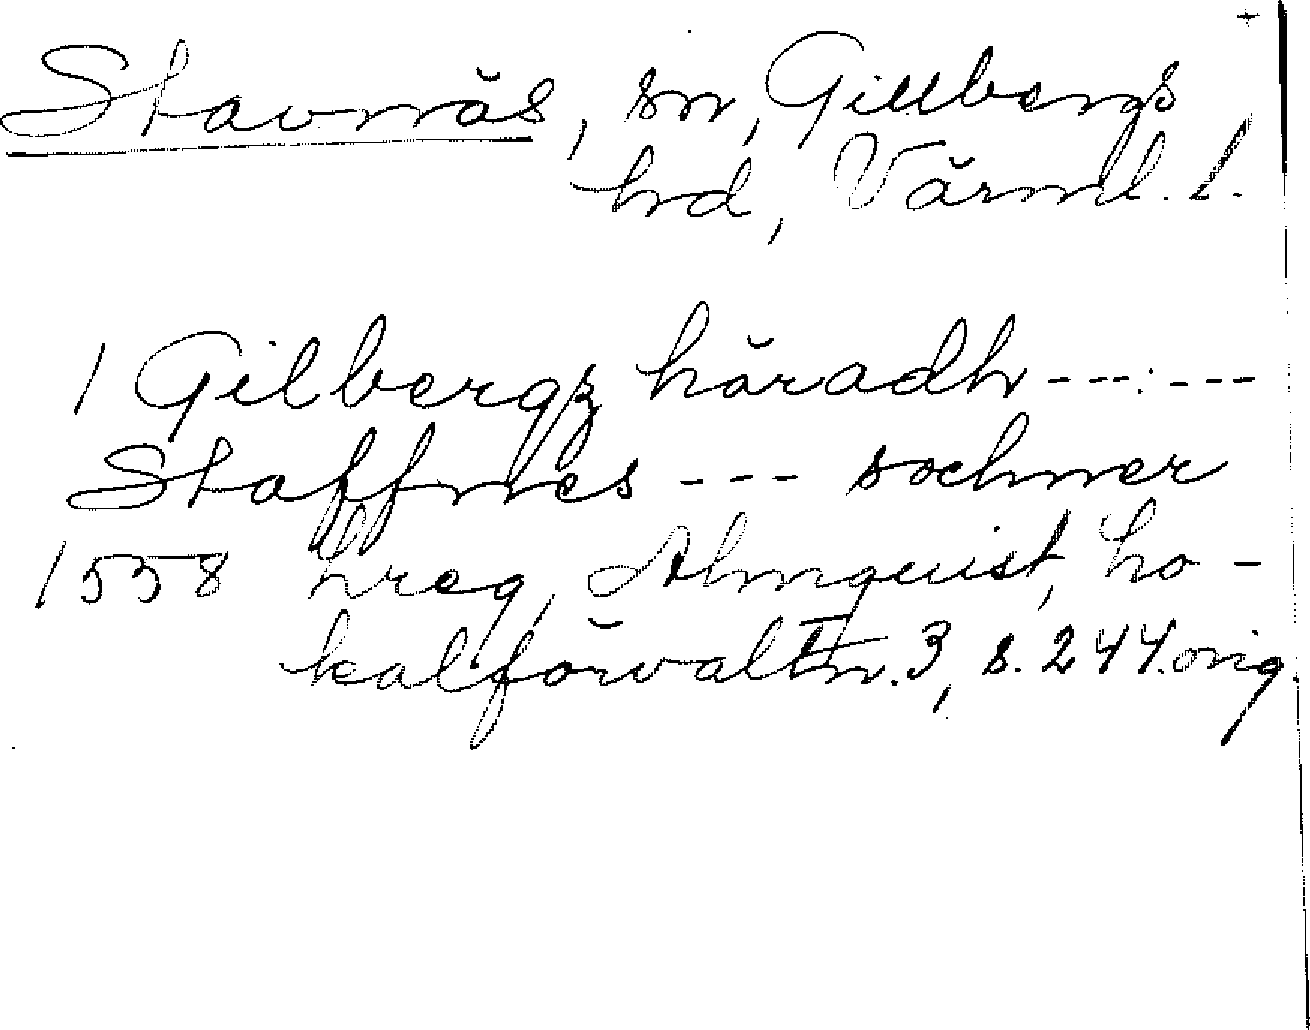 +
Stavnäs, sn, Gillbergs
hd, Värml. l.
I Gilbergz häradh ---:---
Staffnes --- sochner
1558 hreg, Almquist, Lo-
kalförvaltn. 3, s. 244. orig.